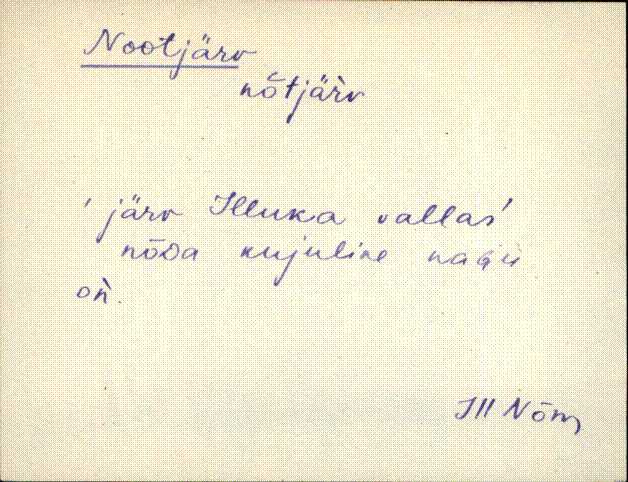 Nootjärv
nȭtjär̀v
'järv Illuka vallas'
nō͔D̥a kujuline nagu
oǹ.
Ill Nõm